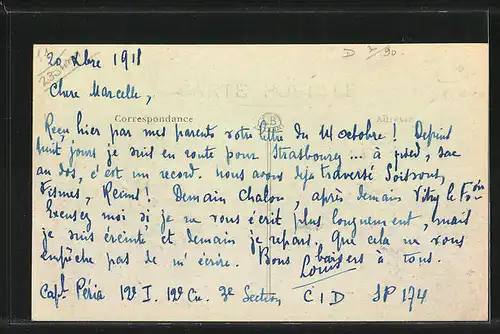 20 Xbre 1918
D 7/90
Chere Marcelle,
CARTE POSTALE
Correspondance
Adresse
Reçu hier par mes parents votre lettre du 14 octobre ! Depuis
huit jours je suis en route pour Strasbourg ... à pied, sac
au dos, c'est un record. Nous avons déjà traversé Soissons,
Fismes, Reims ! Demain Chalon, après demain Vitry le Fois
Excusez moi si je ne vous écrit plus longuement, mais
je suis éreinté et demain je repart. Que cela ne vous
empêche pas de m'écrire. Bons baisers à tous.
Louis
Capl Péria 12e I. 12e Cie 3e Section CID SP 174